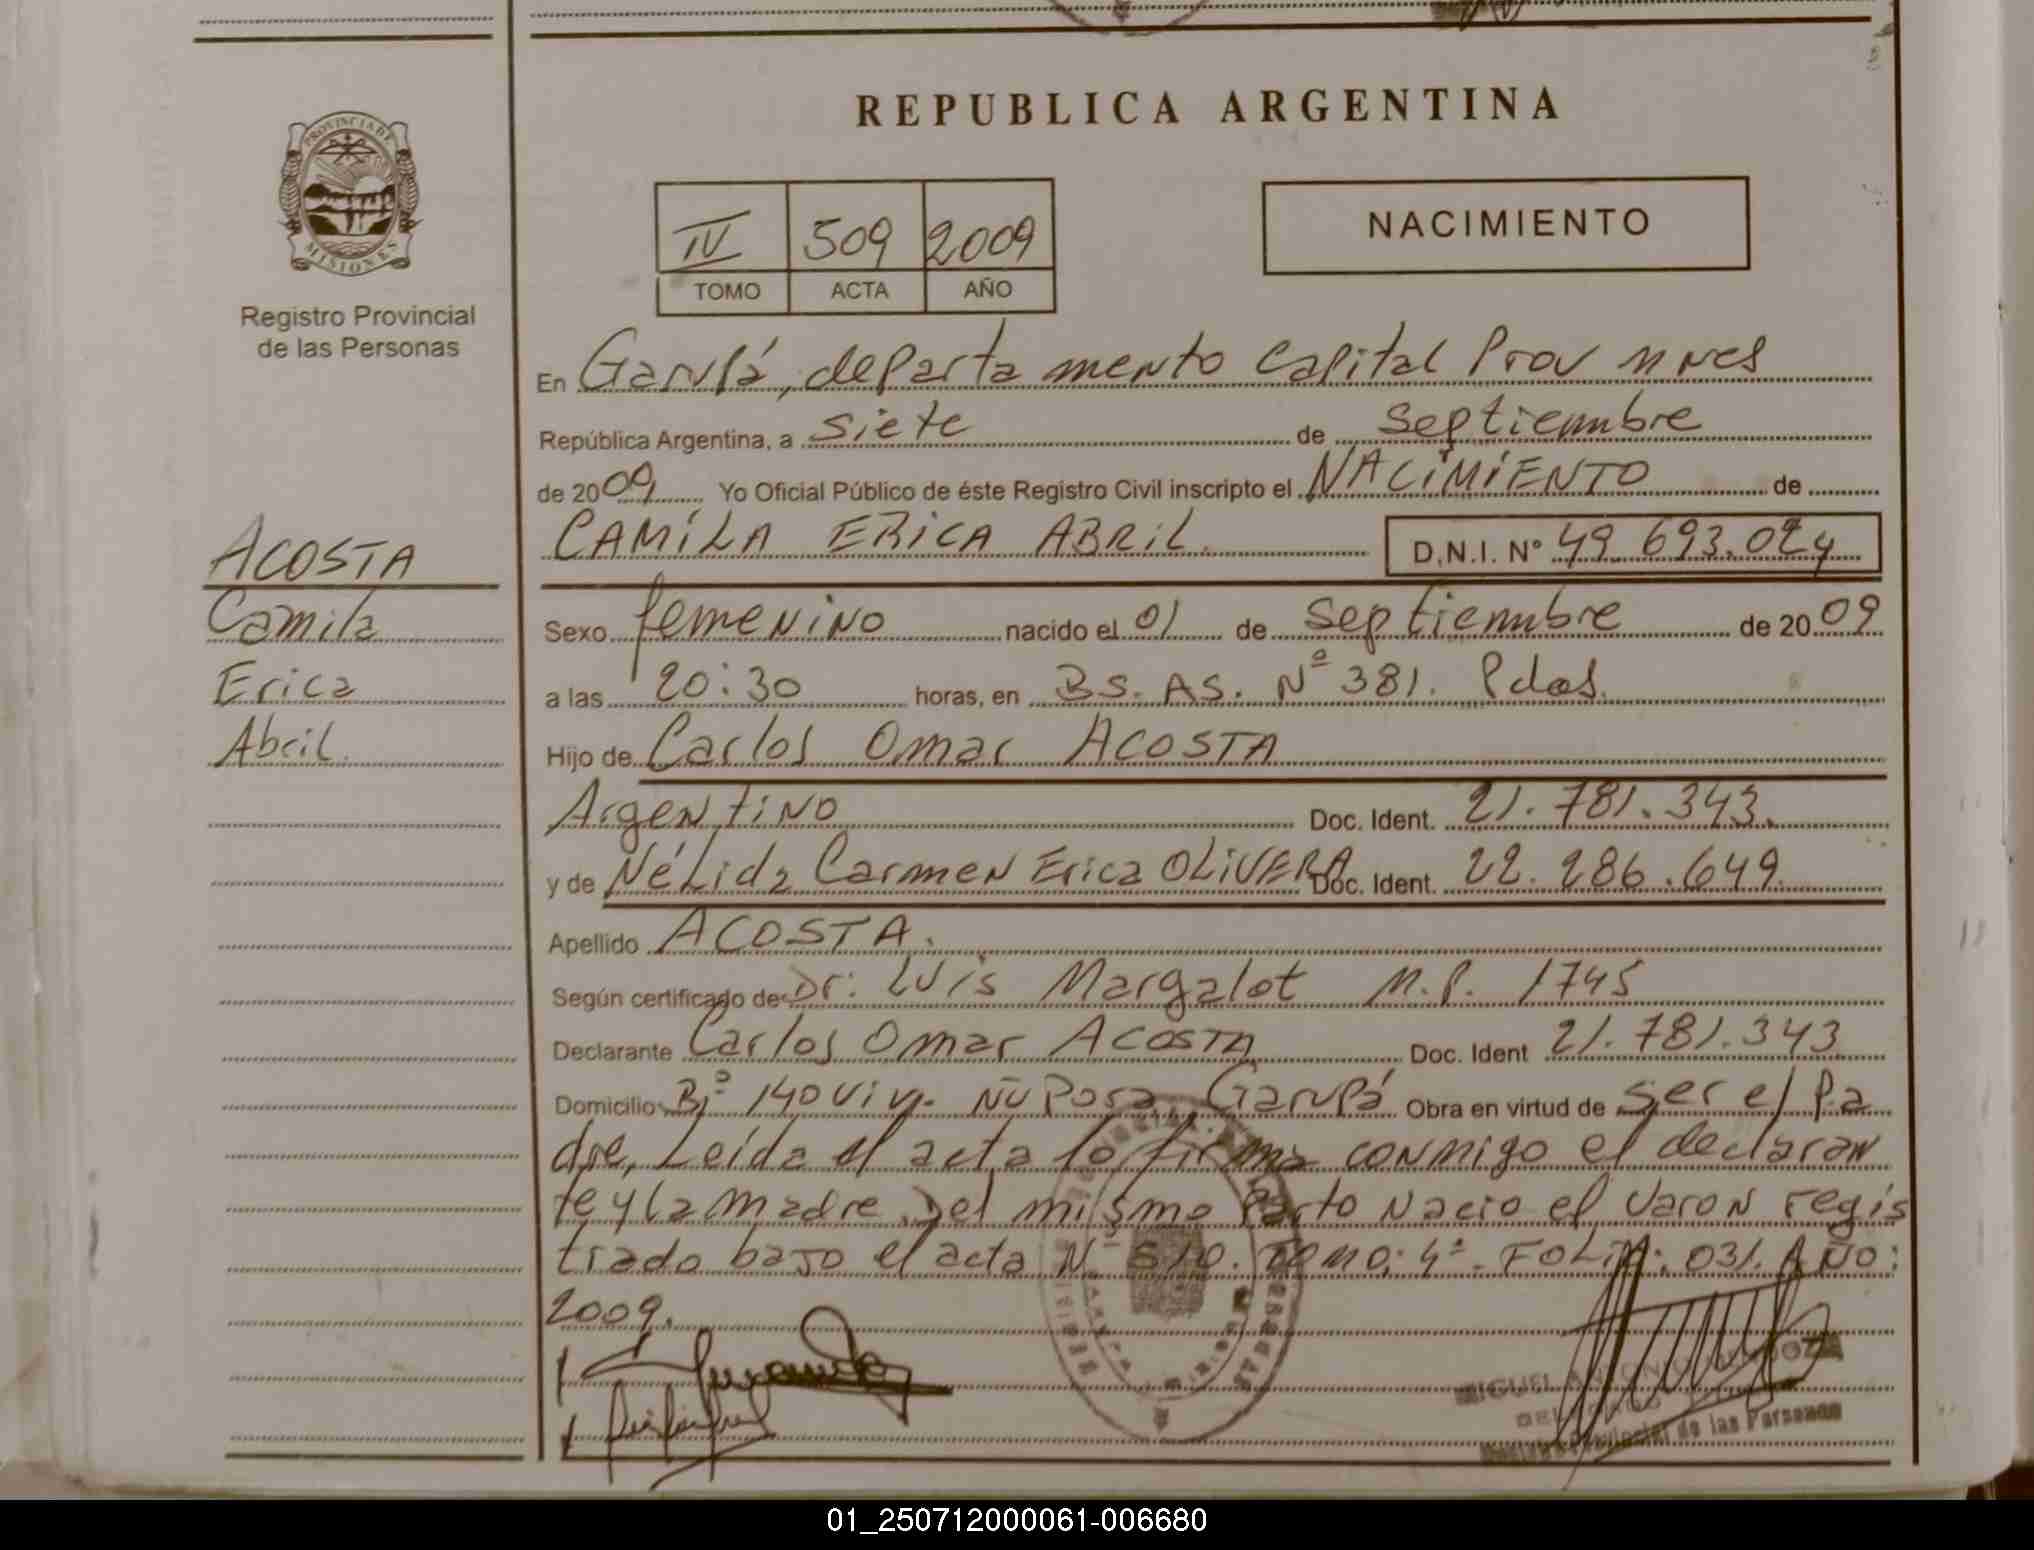 REPUBLICA ARGENTINA
PROVINCIA DE
MISIONES
Registro Provincial
de las Personas
NACIMIENTO
IV 509 2009
TOMO ACTA AÑO
En Garupá, departamento Capital Prov Mnes
República Argentina, a siete de septiembre
de 2009 Yo Oficial Público de éste Registro Civil inscripto el NACIMIENTO de
CAMILA ERICA ABRIL. D.N.I. Nº 49 693.024
ACOSTA
Camila
Erica
Abril.
Sexo femenino nacido el 01 de septiembre de 2009
a las 20:30 horas, en BS. AS. Nº 381. Pdas.
Hijo de Carlos Omar ACOSTA
Argentino Doc. Ident. 21.781.343.
y de Nélida Carmen Erica OLIVERA Doc. Ident. 22.286.649.
Apellido ACOSTA.
Según certificado de Dr: Luis Margalot M.P. 1745
Declarante Carlos Omar ACOSTA Doc. Ident 21.781.343
Domicilio Bº 140 Viv. Ñu Pora, Garupá Obra en virtud de ser el Pa
dre, Leída el acta la firma conmigo el declaran
te y la madre. Del mismo Parto Nacio el Varon regis
trado bajo el acta Nº 510. TOMO: 4º. FOLIO: 031. AÑO:
2009.
MIGUEL ANTONIO
Provincial de las Personas
01_250712000061-006680